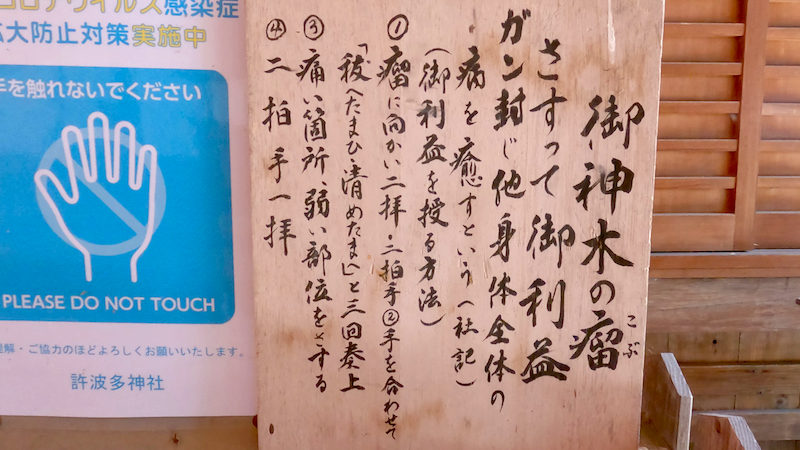 御神木の瘤
こぶ
さすって御利益
ガン封じ他身体全体の
病を癒すという(社記)
(御利益を授る方法)
①瘤に向かい二拝・二拍手②手を合わせて
「祓へたまひ清めたまへ」と三回奏上
③痛い箇所、弱い部位をさする
④二拍手一拝
コロナウイルス感染症
拡大防止対策実施中
手を触れないでください
PLEASE DO NOT TOUCH
理解・ご協力のほどよろしくお願いいたします。
許波多神社